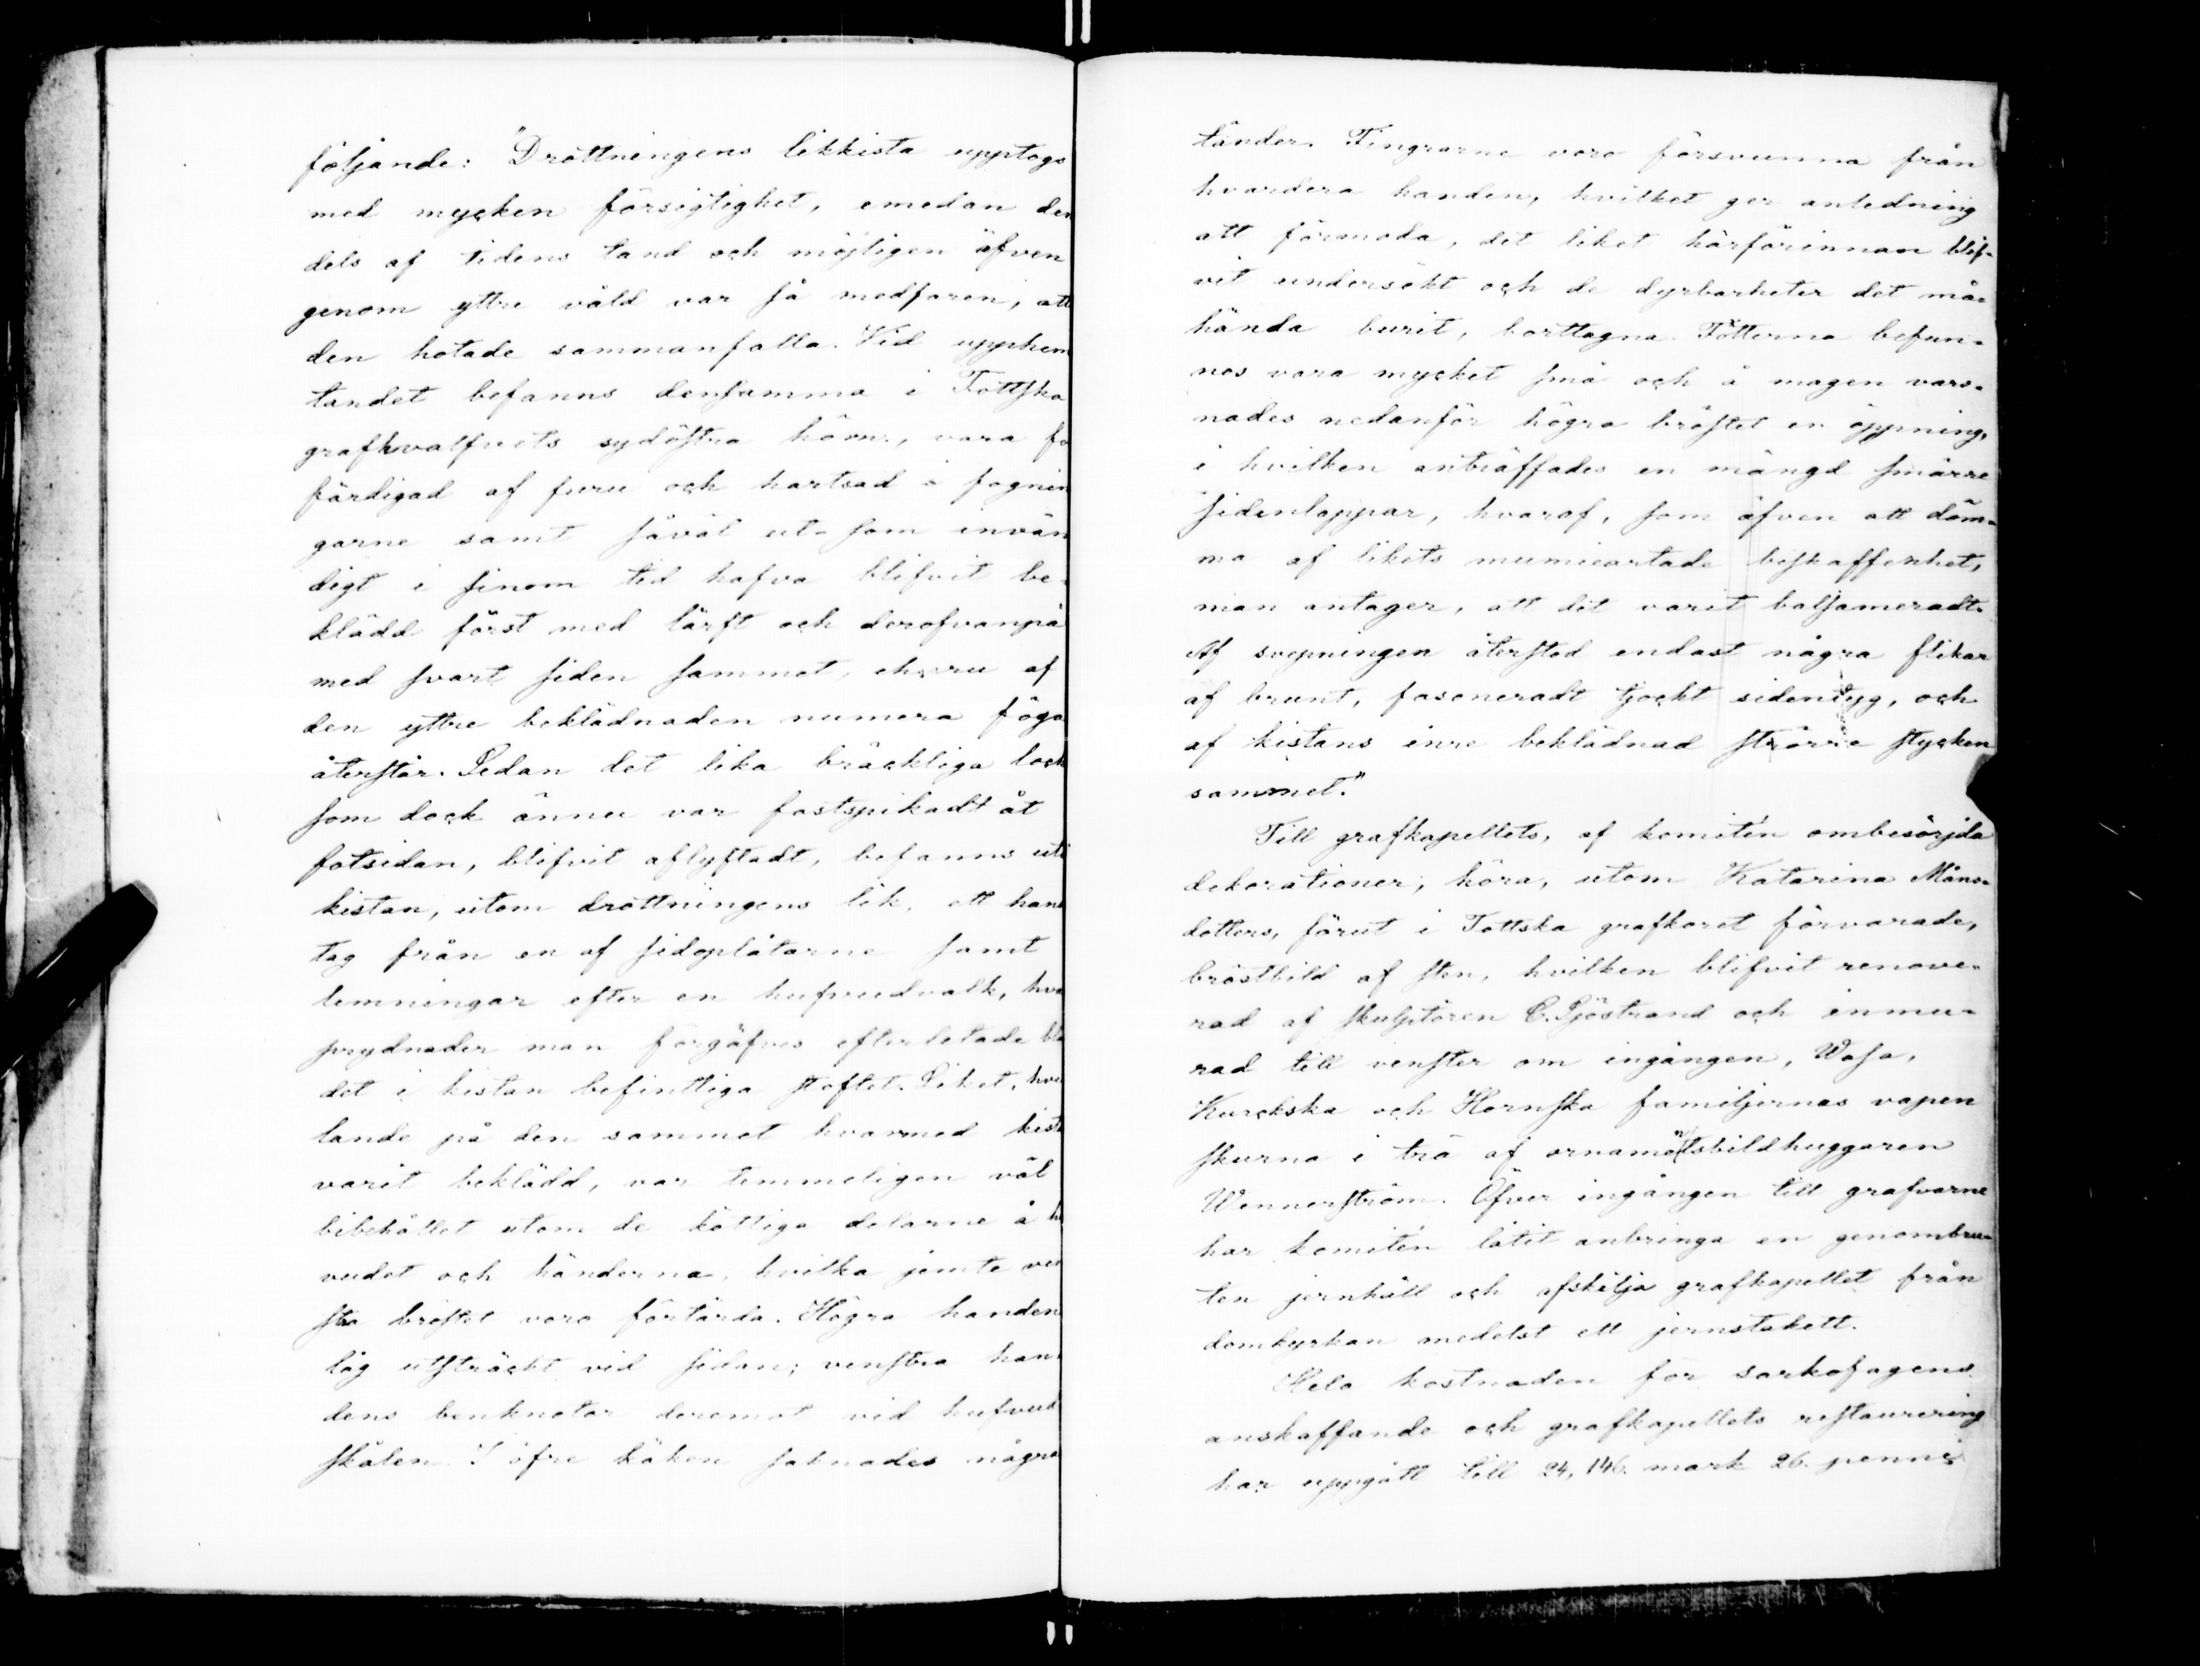 följande: "Drottningens likkista upptogs
med mycken försigtighet, emedan den
dels af tidens tand och möjligen äfven
genom yttre våld var så medfaren, att
den hotade sammanfalla. Vid upphem
tandet befanns densamma i Tottska
grafhvalfvets sydöstra hörn, vara fö
färdigad af furu och hartsad i fognin
garne samt såväl ut- som invän
digt i sinom tid hafva blifvit be-
klädd först med lärft och derofvanpå
med svart siden sammet, ehuru af
den yttre beklädnaden numera föga
återstår. Sedan det lika bräckliga lock
som dock ännu var fastspikadt åt
fotsidan, blifvit aflyftadt, befanns uti
kistan, utom drottningens lik, ett hand
tag från en af sidoplåtarne samt
lemningar efter en hufvudvalk, hva
prydnader man förgäfves efterletade bla
det i kistan befintliga stoftet. Liket, hvi
lande på den sammet hvarmed kista
varit beklädd, var temmeligen väl
bibehållet utom de köttiga delarne å hu
vudet och händerna, hvilka jemte ven
stra bröstet voro förtärda. Högra handen
låg utsträckt vid sidan; venstra han
dens benknotor deremot vid hufvud
skålen. I öfre käken saknades några
tänder. Fingrarne voro försvunna från
hvardera handen, hvilket ger anledning
att förmoda, det liket härförinnan blif-
vit undersökt och de dyrbarheter det må-
hända burit, borttagna. Fötterna befun-
nos vara mycket små och å magen vars-
nades nedanför högra bröstet en öppning,
i hvilken anträffades en mängd smärre
sidenlappar, hvaraf, som äfven att döm-
ma af likets mumieartade beskaffenhet,
man antager, att det varit balsameradt.
Af svepningen återstod endast några flikar
af brunt, fasoneradt tjockt sidentyg, och
af kistans inre beklädnad större stycken
sammet."
Till grafkapellets, af komitén ombesörjda
dekorationer, höra, utom Katarina Måns-
dotters, förut i Tottska grafkoret förvarade,
bröstbild af sten, hvilken blifvit renove-
rad af skulptören C. Sjöstrand och inmu-
rad till venster om ingången, Wasa,
Kurckska och Hornska familjernas vapen
skurna i trä af ornamentsbildhuggaren
Wennerström. Öfver ingången till grafvarne
har komitén låtit anbringa en genombru-
ten jernhäll och afskilja grafkapellet från
domkyrkan medelst ett jernstakett.
Hela kostnaden för sarkofagens
anskaffande och grafkapellets restaurering
har uppgått till 24,146. mark 26. penni